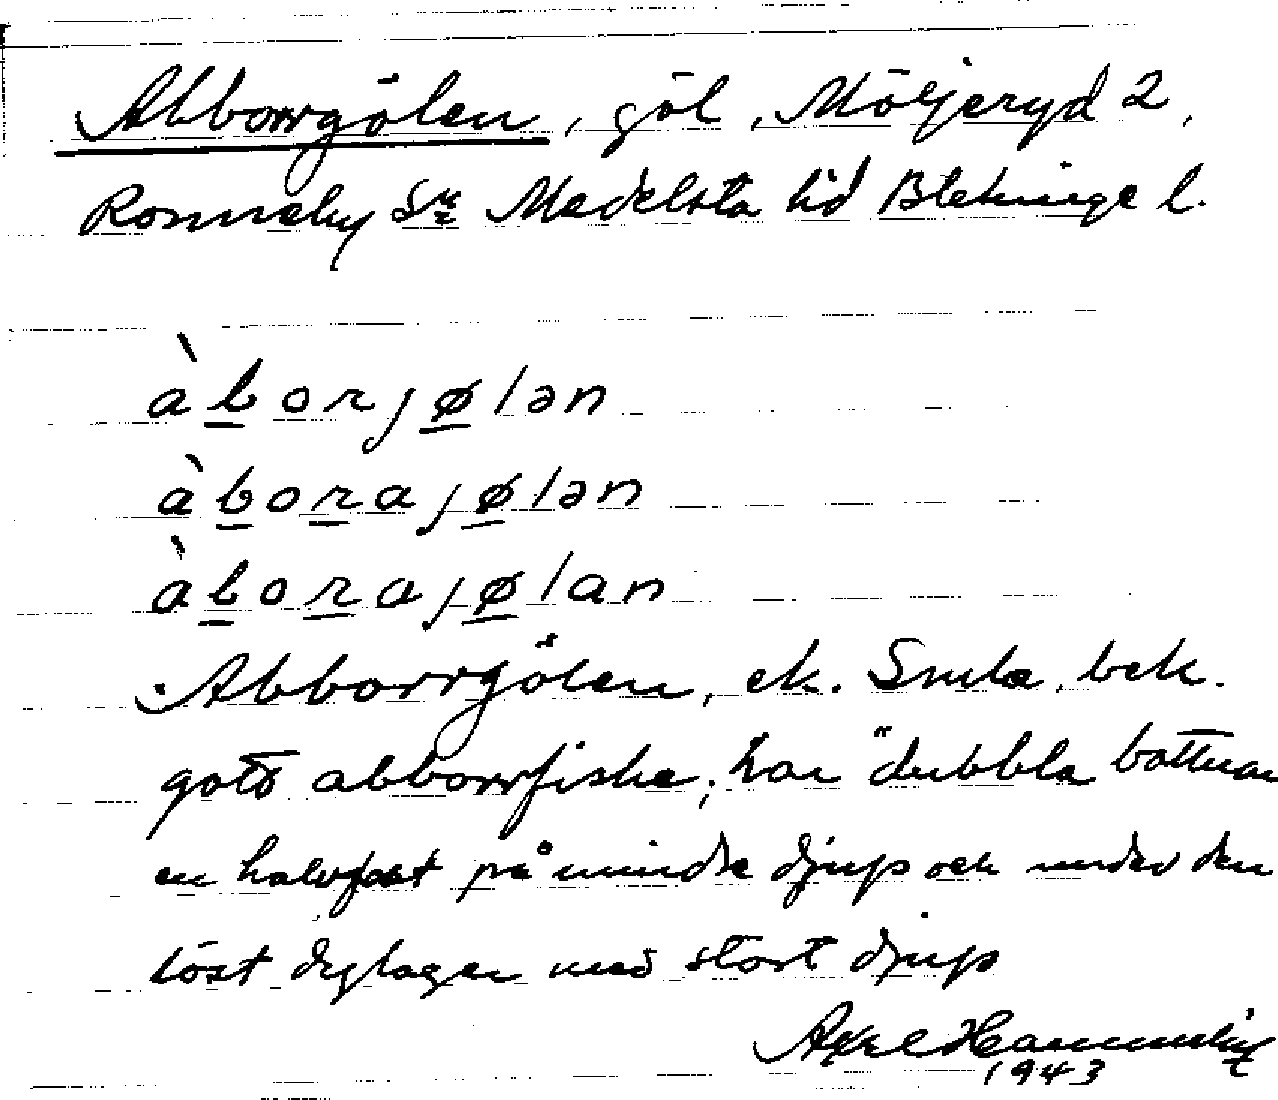 Abborrgölen, göl, Möljeryd 2,
Ronneby Sn Medelsta hd Blekinge l.
àborjølən
àborajølən
àborajølan
Abborrgölen, ek. Smla, bek.
gott abborrfiske; har "dubbla bottnar
en halvfast på mindre djup och under den
löst dylager med stort djup
Axel
1943